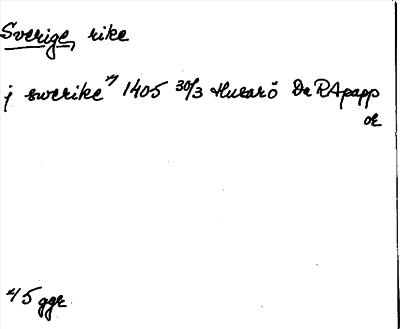 Sverige, rike
j swerike *) 1405 30/3 Husarö Da RApapp
or
*) 5 ggr